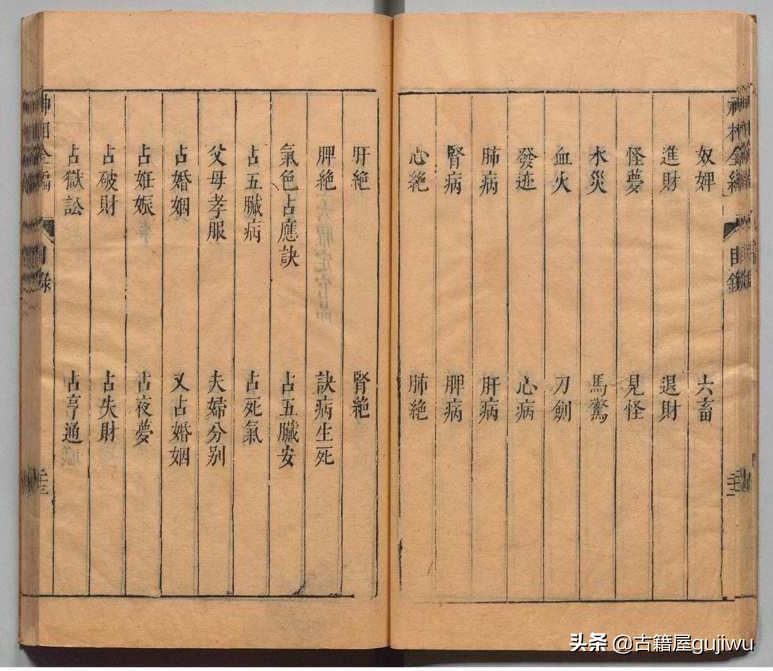 神相全編 目錄
奴婢 六畜
進財 退財
怪夢 見怪
水災 馬驚
血火 刀劍
發迹 心病
肺病 肝病
腎病 脾病
心絕 肺絕
肝絕 腎絕
脾絕 訣病生死
氣色占應訣 占五臟安
占五臟病 占死氣
父母孝服 夫婦分别
占婚姻 又占婚姻
占妊娠 占夜夢
占破財 占失財
占獄訟 占亨通
神相全編 目錄
头条 @古籍屋gujiwu